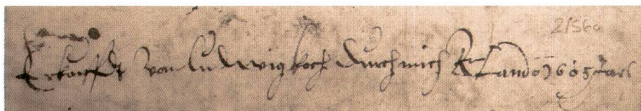 21560
Erkaufft von Ludwig Koch durch mich Anno 1605 Jars